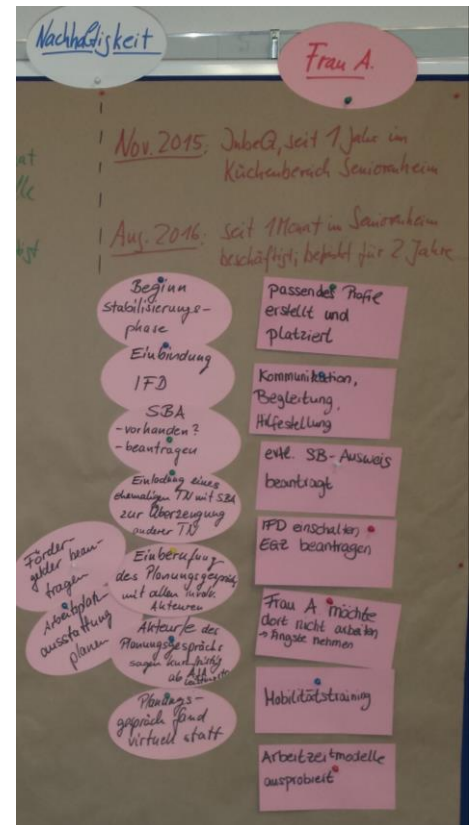 Nachhaltigkeit
Frau A.
Nov. 2015: InbeQ, seit 1 Jahr im
Küchenbereich Seniorenheim
Aug. 2016: seit 1 Monat in Seniorenheim
beschäftigt, befristet für 2 Jahre
Beginn
Stabilisierungs-
phase
Einbindung
IFD
SBA
- vorhanden?
- beantragen
Einladung eines
ehemaligen TN mit SBA
zur Überzeugung
anderer TN
Förder-
gelder bean-
tragen
Arbeitsplatz-
ausstattung
planen
Einberufung
des Planungsgespräch
mit allen involv.
Akteuren
Akteur/e des
Planungsgesprächs
sagen kurzfristig
ab
Planungs-
gespräch fand
virtuell statt
passendes Profil
erstellt und
platziert
Kommunikation,
Begleitung,
Hilfestellung
evtl. SB-Ausweis
beantragt
IFD einschalten
EGZ beantragen
Frau A möchte
dort nicht arbeiten
→ Ängste nehmen
Mobilitätstraining
Arbeitzeitmodelle
ausprobiert